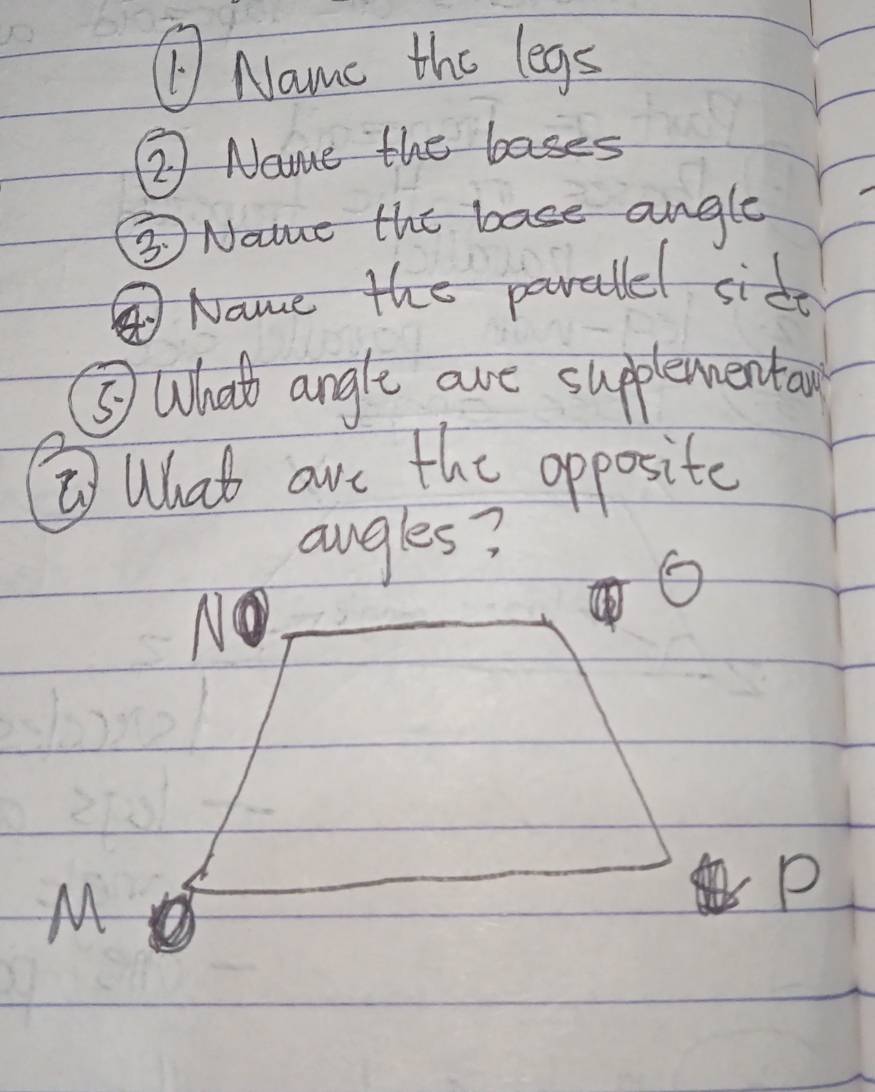 1. Name the legs
2. Name the bases
3. Name the base angle
4. Name the parallel side
5. What angle are supplementary
What are the opposite
angles?
N O
M P